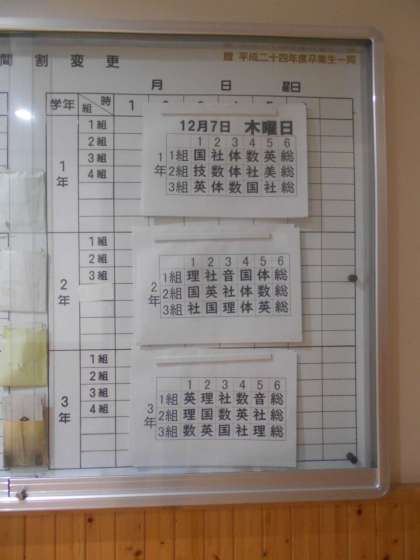 間割変更
贈 平成二十四年度卒業生一同
月 日 曜日
学年 組 時 1
1年
1組
2組
3組
4組
12月7日 木曜日
1 2 3 4 5 6
1年
1組 国 社 体 数 英 総
2組 技 数 体 社 美 総
3組 英 体 数 国 社 総
2年
1組
2組
3組
1 2 3 4 5 6
2年
1組 理 社 音 国 体 総
2組 国 英 社 体 数 総
3組 社 国 理 体 英 総
3年
1組
2組
3組
4組
1 2 3 4 5 6
3年
1組 英 理 社 数 音 総
2組 理 国 数 英 社 総
3組 数 英 国 社 理 総